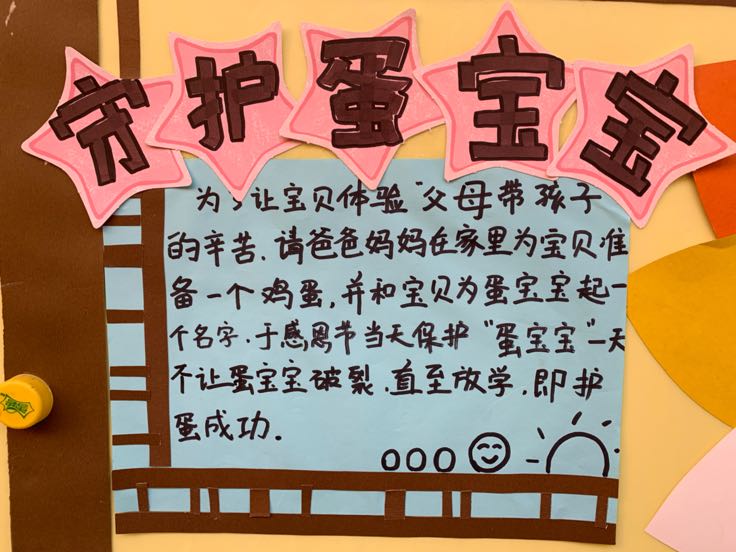 守护蛋宝宝
为了让宝贝体验“父母带孩子
的辛苦.请爸爸妈妈在家里为宝贝准
备一个鸡蛋,并和宝贝为蛋宝宝起一
个名字.于感恩节当天保护“蛋宝宝”一天
不让蛋宝宝破裂.直至放学,即护
蛋成功.